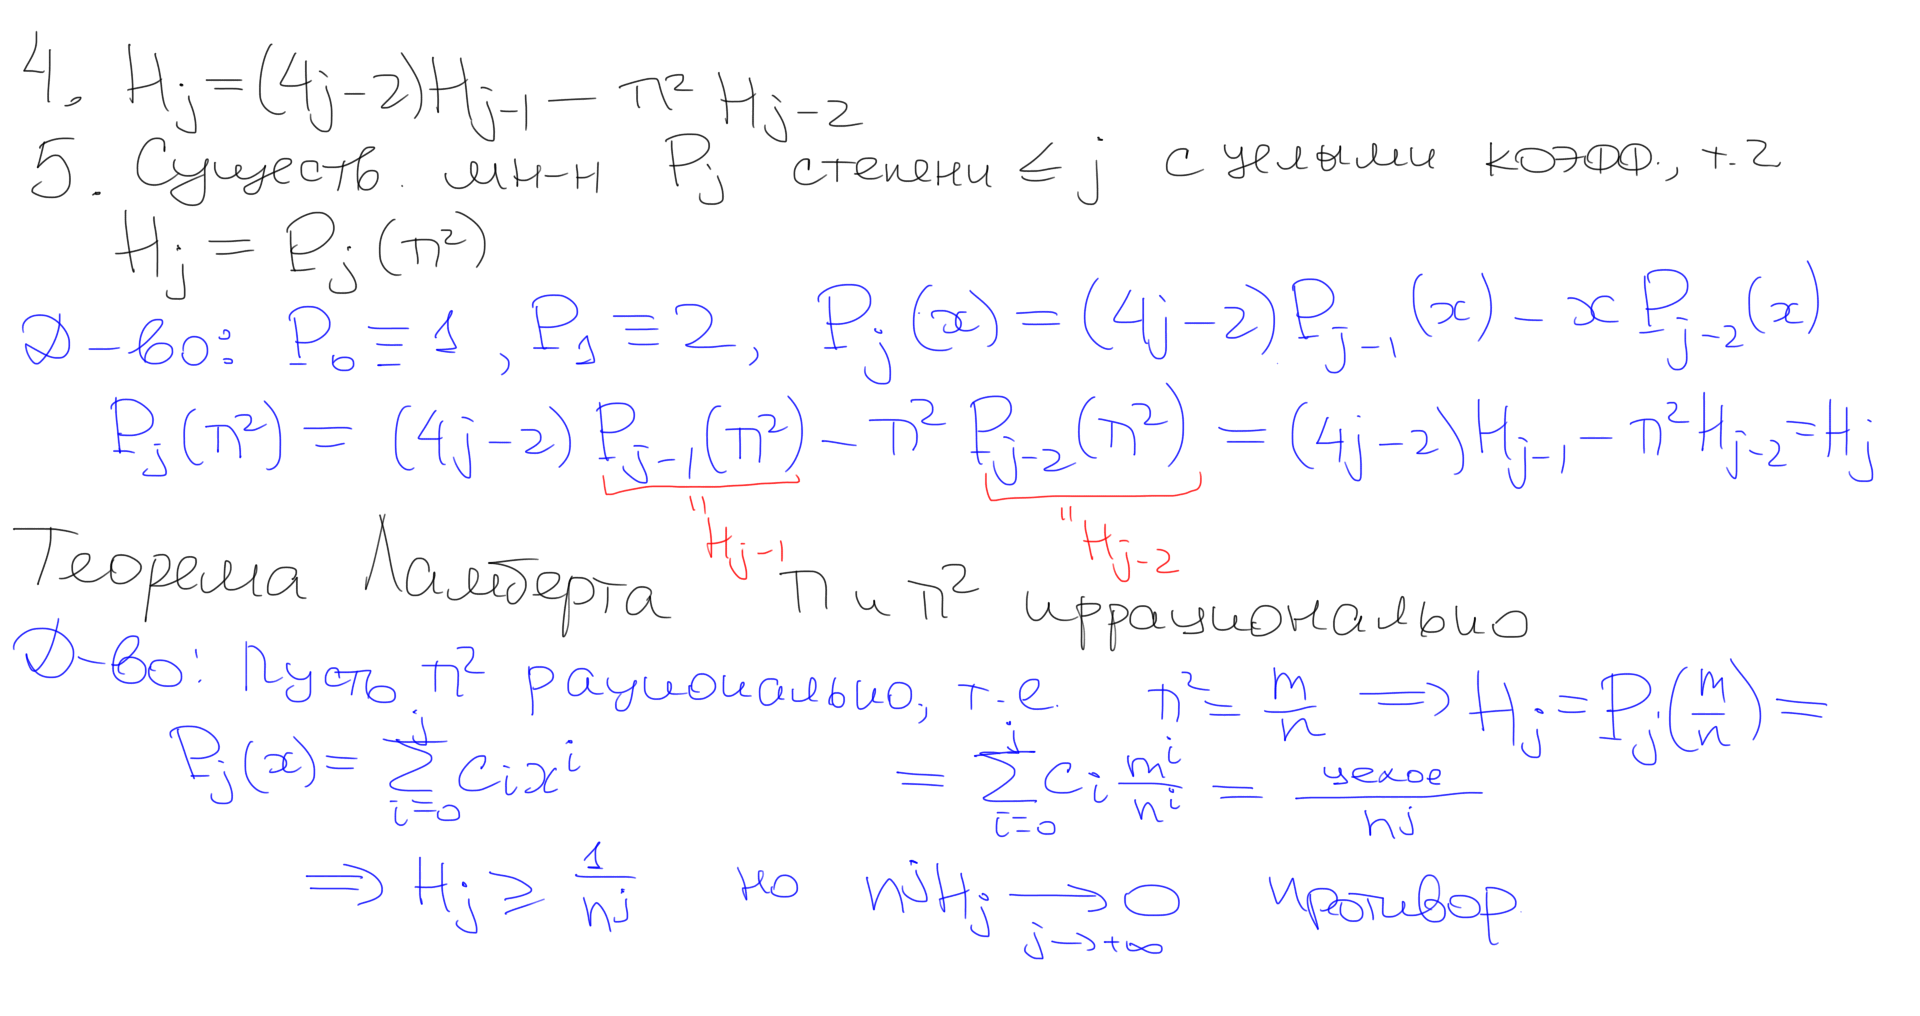 4. H_j = (4j-2)H_{j-1} - π² H_{j-2}
5. Существ. мн-н P_j степени ≤ j с целыми коэфф., т.ч
H_j = P_j(π²)
Д-во: P_0 ≡ 1, P_1 ≡ 2, P_j(x) = (4j-2)P_{j-1}(x) - xP_{j-2}(x)
P_j(π²) = (4j-2) P_{j-1}(π²) - π² P_{j-2}(π²) = (4j-2)H_{j-1} - π² H_{j-2} = H_j
" H_{j-1} " H_{j-2}
Теорема Ламберта π и π² иррационально
Д-во: Пусть π² рационально, т.е. π² = m/n ⟹ H_j = P_j(m/n) =
P_j(x) = ∑_{i=0}^{j} c_i x^i = ∑_{i=0}^{j} c_i m^i/n^i = целое/n^j
⟹ H_j ⩾ 1/n^j но n^j H_j ⟶_{j→+∞} 0 противор.